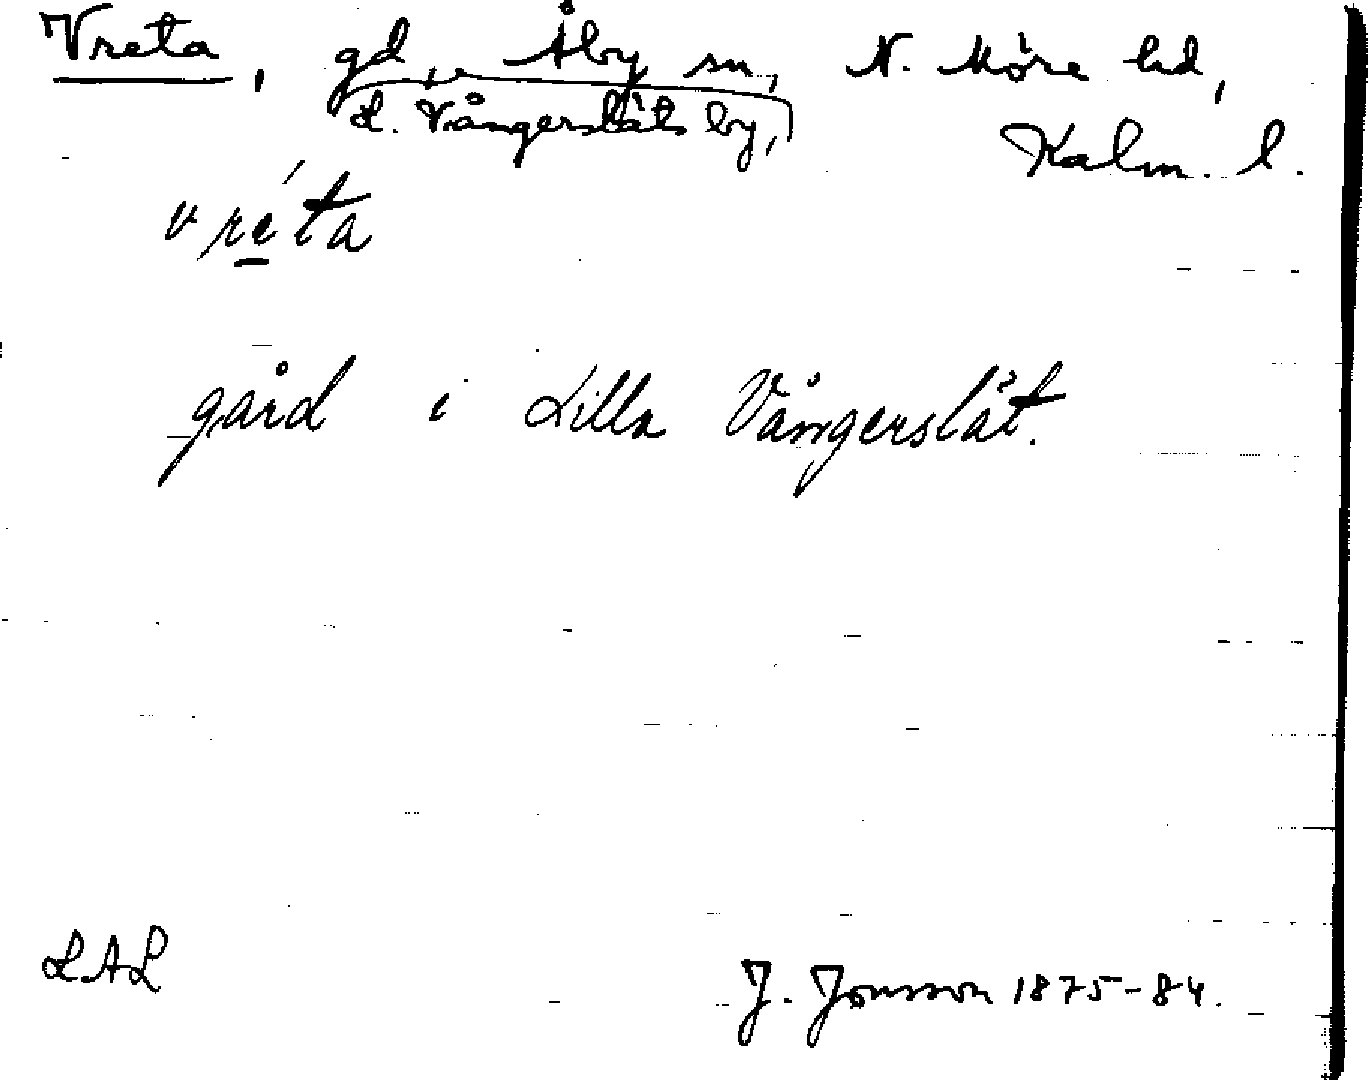 Vreta, gd, Åby sn, N. Möre hd,
L. Vångerslåts by,
Kalm. l.
vréta
gård i Lilla Vångerslåt.
LAL
J. Jonsson 1875-84.